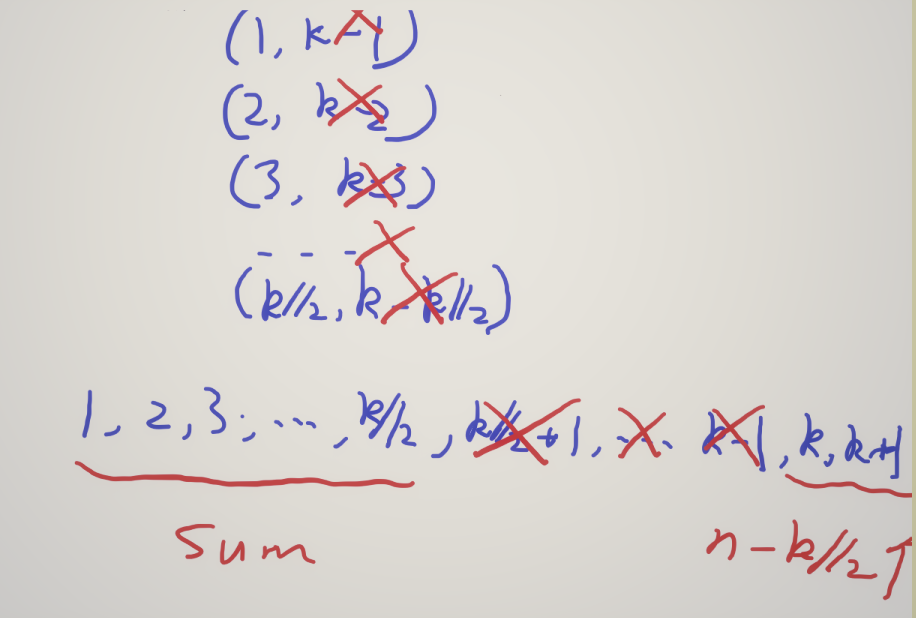 (1, k-1)
(2, k-2)
(3, k-3)
- - -
(k//2, k-k//2)
1, 2, 3, ..., k//2, k//2+1, ... k-1, k, k+1
sum
n-k//2个